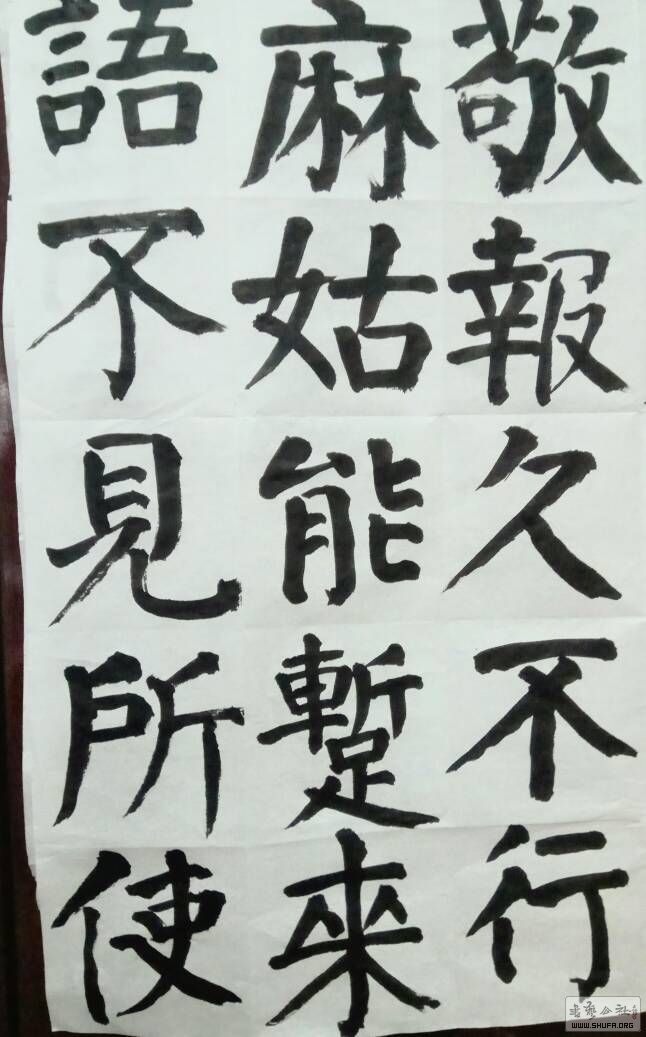 敬報久不行
麻姑能蹔來
語不見所使
書藝公社
WWW.SHUFA.ORG